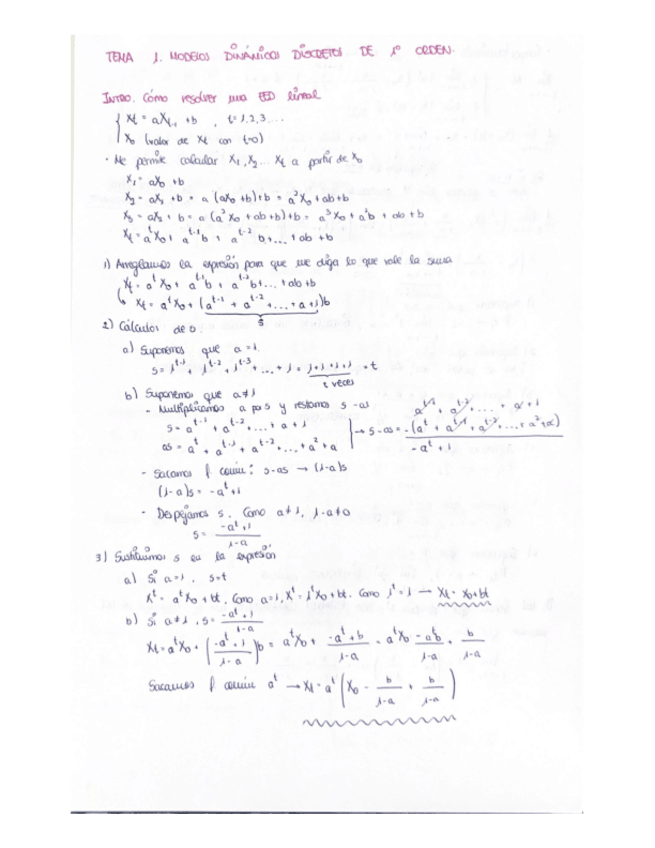 TEMA 1. MODELOS DINÁMICOS DISCRETOS DE 1º ORDEN.
INTRO. Cómo resolver una EED lineal
{ Xt = aXt-1 + b , t = 1,2,3...
X0 (valor de Xt con t=0)
· Me permite calcular X1, X2... Xt a partir de X0
X1 = aX0 + b
X2 = aX1 + b = a (aX0 + b) + b = a²X0 + ab + b
X3 = aX2 + b = a (a²X0 + ab + b) + b = a³X0 + a²b + ab + b
Xt = a^t X0 + a^t-1 b + a^t-2 b + ... + ab + b
1) Arreglamos la expresión para que me diga lo que vale la suma
Xt = a^t X0 + a^t-1 b + a^t-2 b + ... + ab + b
Xt = a^t X0 + (a^t-1 + a^t-2 + ... + a + 1) b
s
2) Cálculos de s:
a) Suponemos que a = 1
s = 1^t-1 + 1^t-2 + 1^t-3 + ... + 1 = 1+1+1+1 = t
t veces
b) Suponemos que a ≠ 1
- Multiplicamos a por s y restamos s - as
s = a^t-1 + a^t-2 + ... + a + 1
as = a^t + a^t-1 + a^t-2 + ... + a² + a
→ s - as = a^t-1 + a^t-2 + ... + a + 1
-(a^t + a^t-1 + a^t-2 + ... + a² + a)
- a^t + 1
- Sacamos f. común: s - as → (1-a)s
(1-a)s = -a^t + 1
- Despejamos s. Como a ≠ 1, 1-a ≠ 0
s = (-a^t + 1)/(1-a)
3) Sustituimos s en la expresión
a) Si a = 1, s = t
Xt = a^t X0 + bt. Como a = 1, Xt = 1^t X0 + bt. Como 1^t = 1 → Xt = X0 + bt
b) Si a ≠ 1, s = (-a^t + 1)/(1-a)
Xt = a^t X0 + ((-a^t + 1)/(1-a)) b = a^t X0 + (-a^t + b)/(1-a) = a^t X0 - a^t b/(1-a) + b/(1-a)
Sacamos f. común a^t → Xt = a^t (X0 - b/(1-a) + b/(1-a))